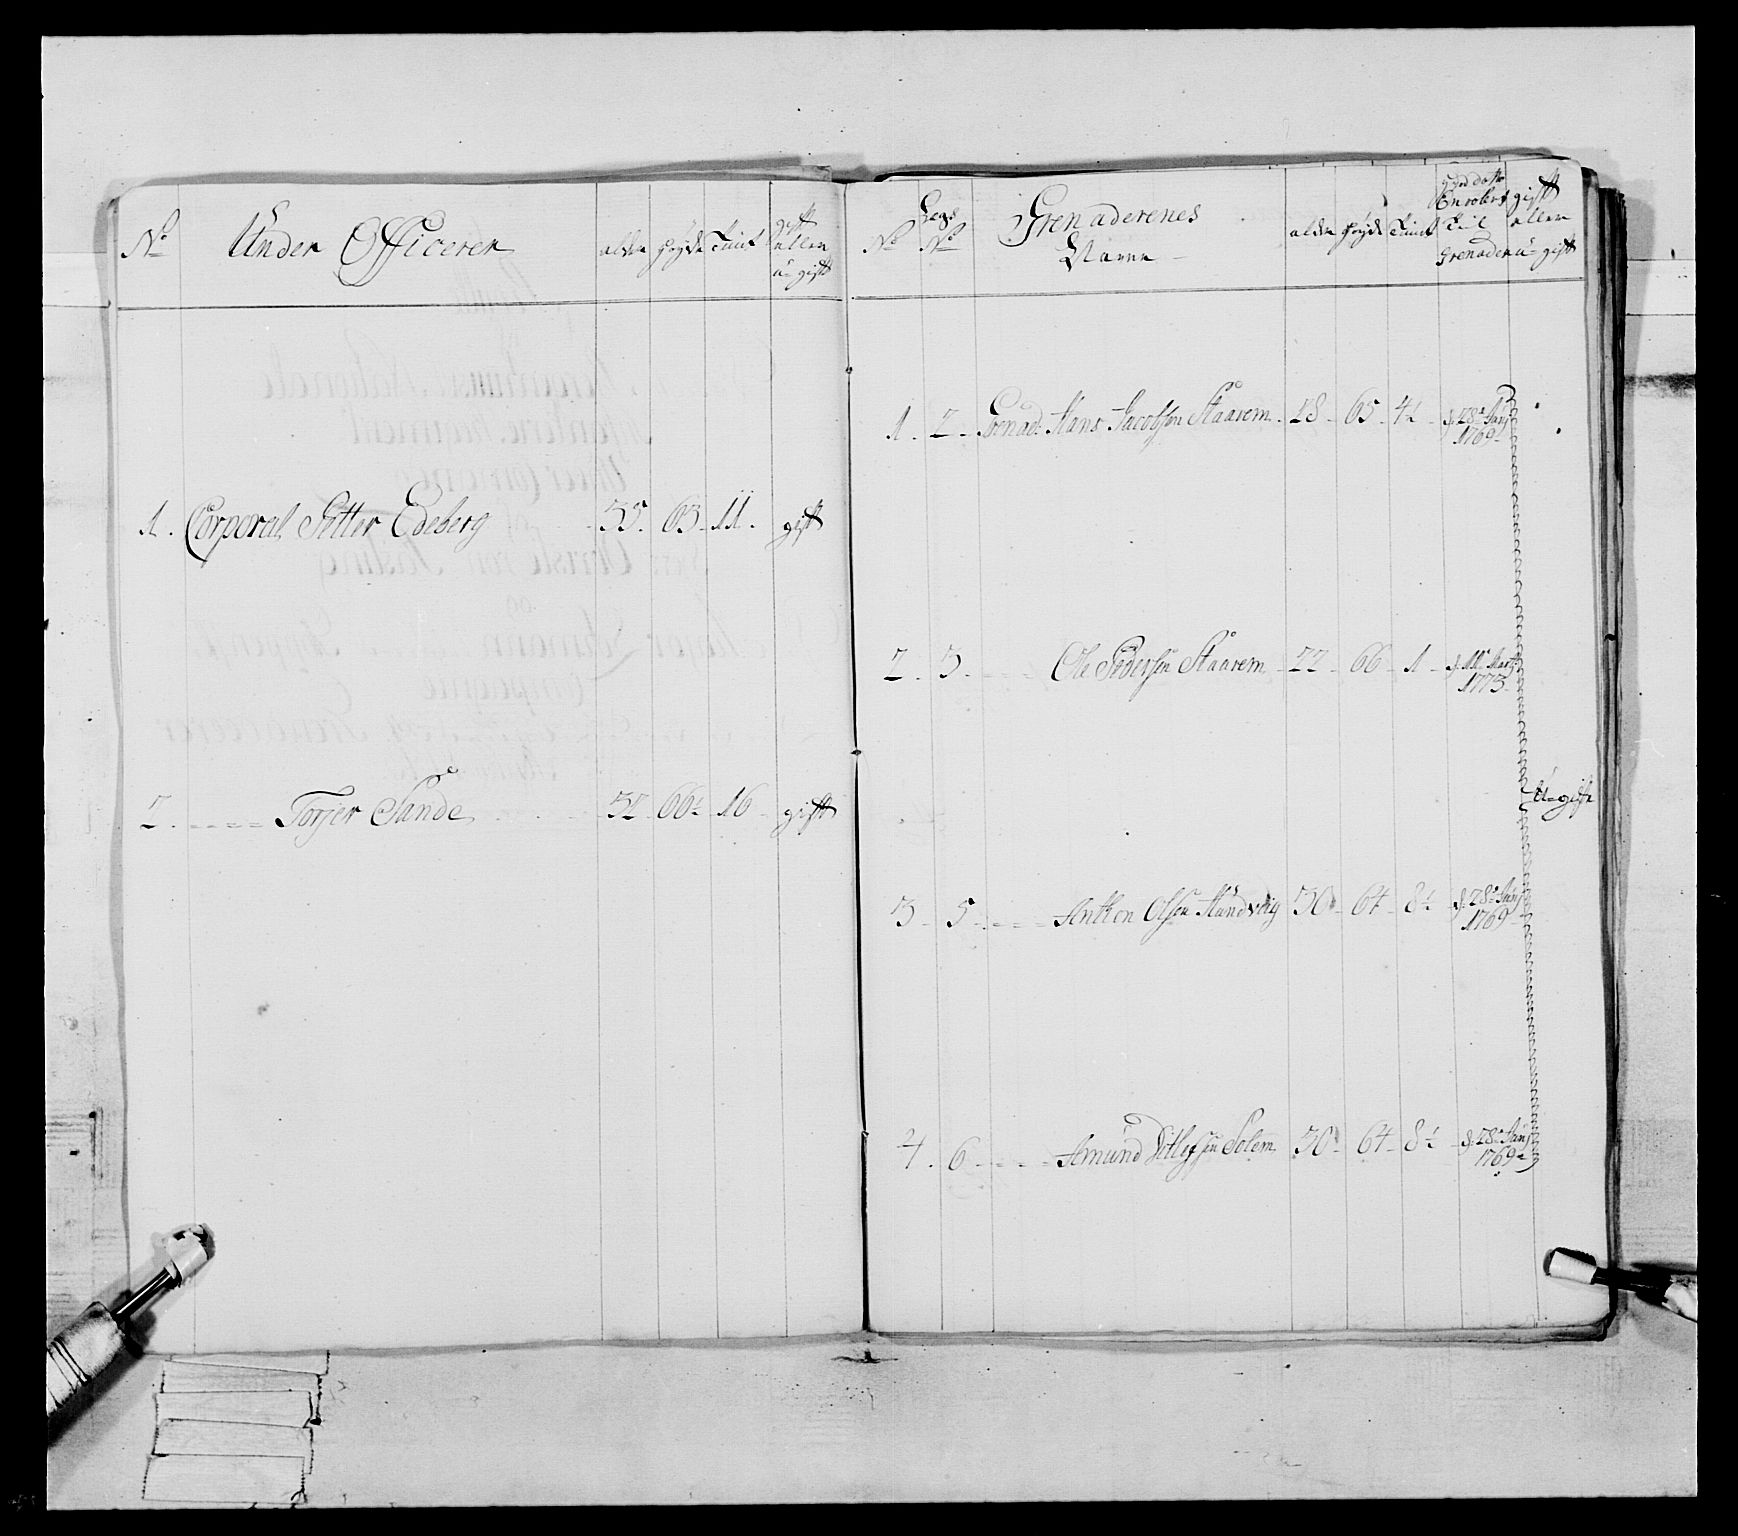 No Under Officerer alder Høyde Tiint gift eller u-gift
1. Corporal Petter Edeberg 35. 63. 11. gift
2. Torjer Sande 32. 66½ 16 gift
No Legs No Grenaderenes Navne alder Høyde Tiint Enrolert til Grenader gift eller u-gift
1. 2. Grenad: Hans Jacobsen Staarem. 28. 65. 4½ d: 28de Junj 1769
2. 3. Ole Pedersen Staarem 22 66 1 d: 11te Martj 1773.
U-gift
3 5 Anthon Olsen Hundvig 30 64 8½ d: 28de Junj 1769
4. 6 Amund Ditlefsen Solem 30 64 8½ d: 28de Junj 1769